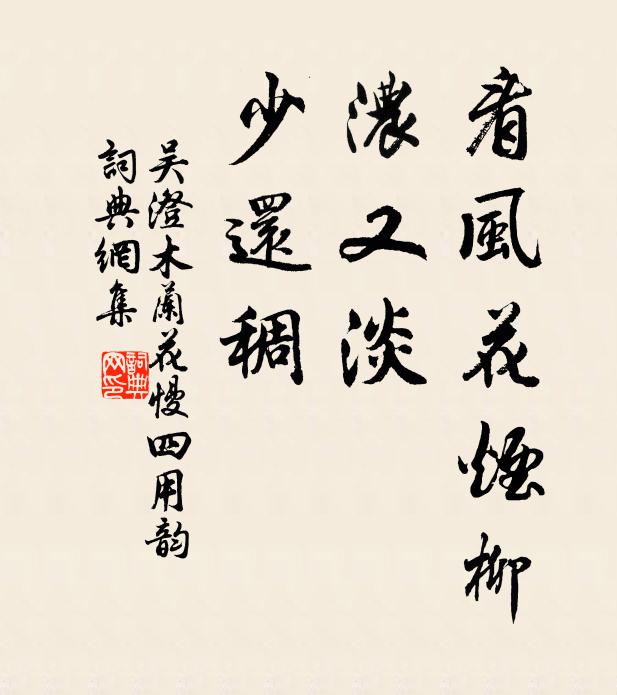 看風花煙柳
濃又淡
少還稠
吴澄木蘭花慢四用韵
詞典網集
詞典
网印